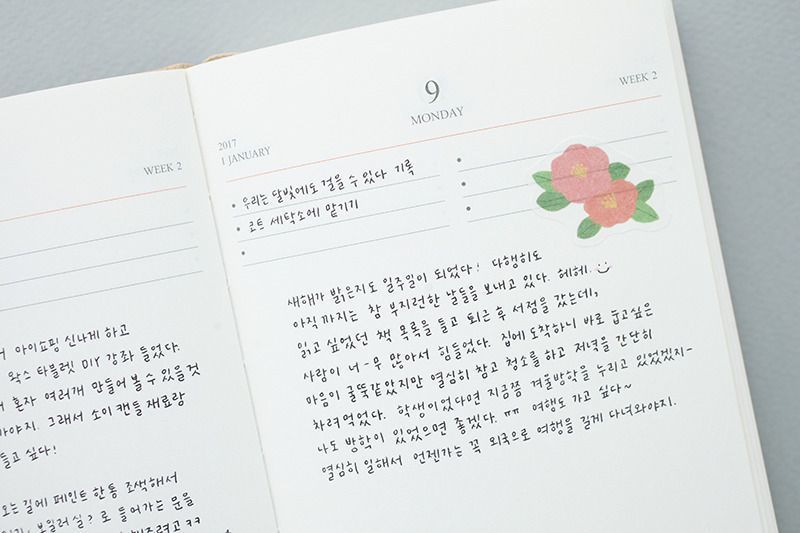 WEEK 2
어 아이쇼핑 신나게 하고
왁스 타블렛 DIY 강좌 들었다.
혼자 여러개 만들어 볼 수 있을것
야지. 그래서 소이캔들 재료랑
들고 싶다!
오는 길에 페인트 한통 조색해서
보일러실? 로 들어가는 문을
2017
1 JANUARY
9
MONDAY
WEEK 2
• 우리는 달빛에도 걸을 수 있다 기록
• 코트 세탁소에 맡기기
새해가 밝은지도 일주일이 되었다! 다행히도
아직까지는 참 부지런한 날들을 보내고 있다. 헤헤
읽고 싶었던 책 목록을 들고 퇴근 후 서점을 갔는데,
사람이 너-무 많아서 힘들었다. 집에 도착하니 바로 눕고싶은
마음이 굴뚝같았지만 열심히 참고 청소를 하고 저녁을 간단히
차려먹었다. 학생이었다면 지금쯤 겨울방학을 누리고 있었겠지-
나도 방학이 있었으면 좋겠다. ㅠㅠ 여행도 가고 싶다~
열심히 일해서 언젠가는 꼭 외국으로 여행을 길게 다녀와야지.